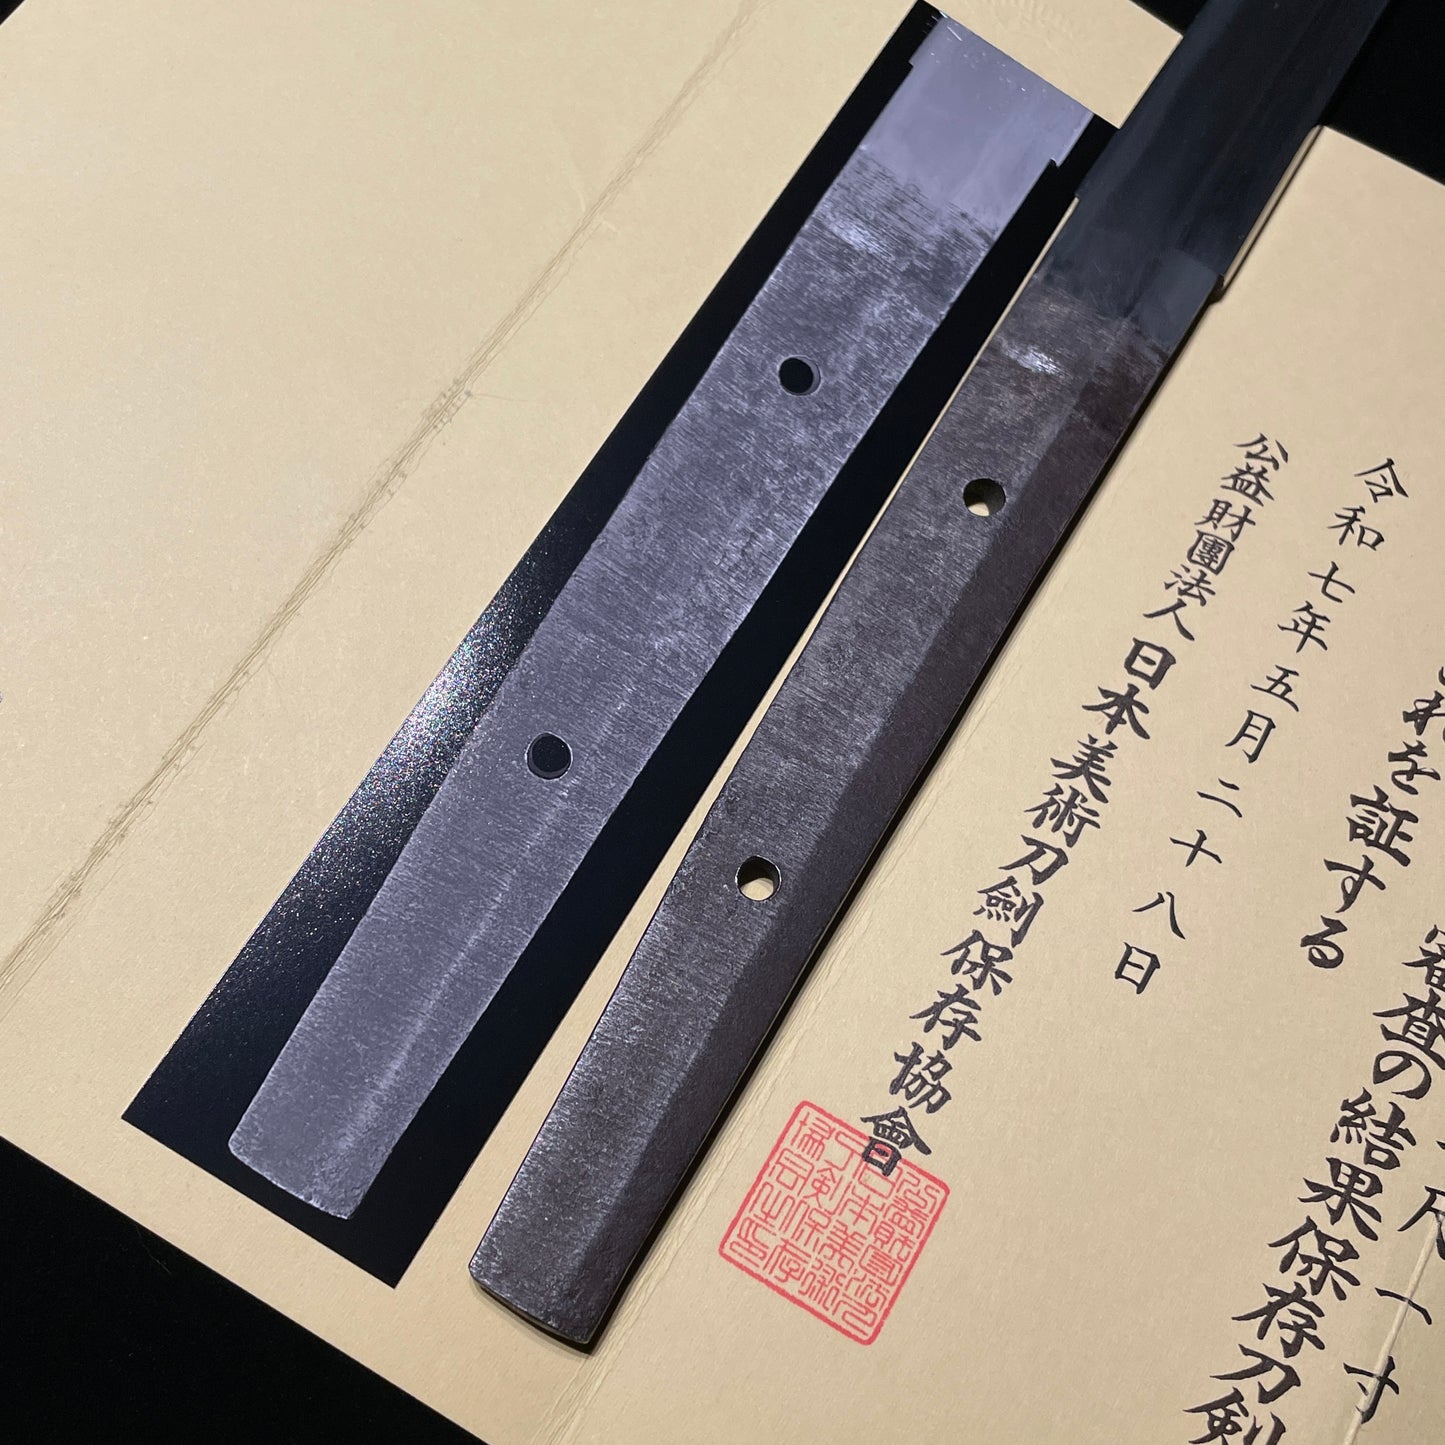 尺一寸
審査の結果保存刀剣
れを証する
令和七年五月二十八日
公益財團法人日本美術刀劍保存協會
公益財團法
人日本美術
刀剣保存
協会之印